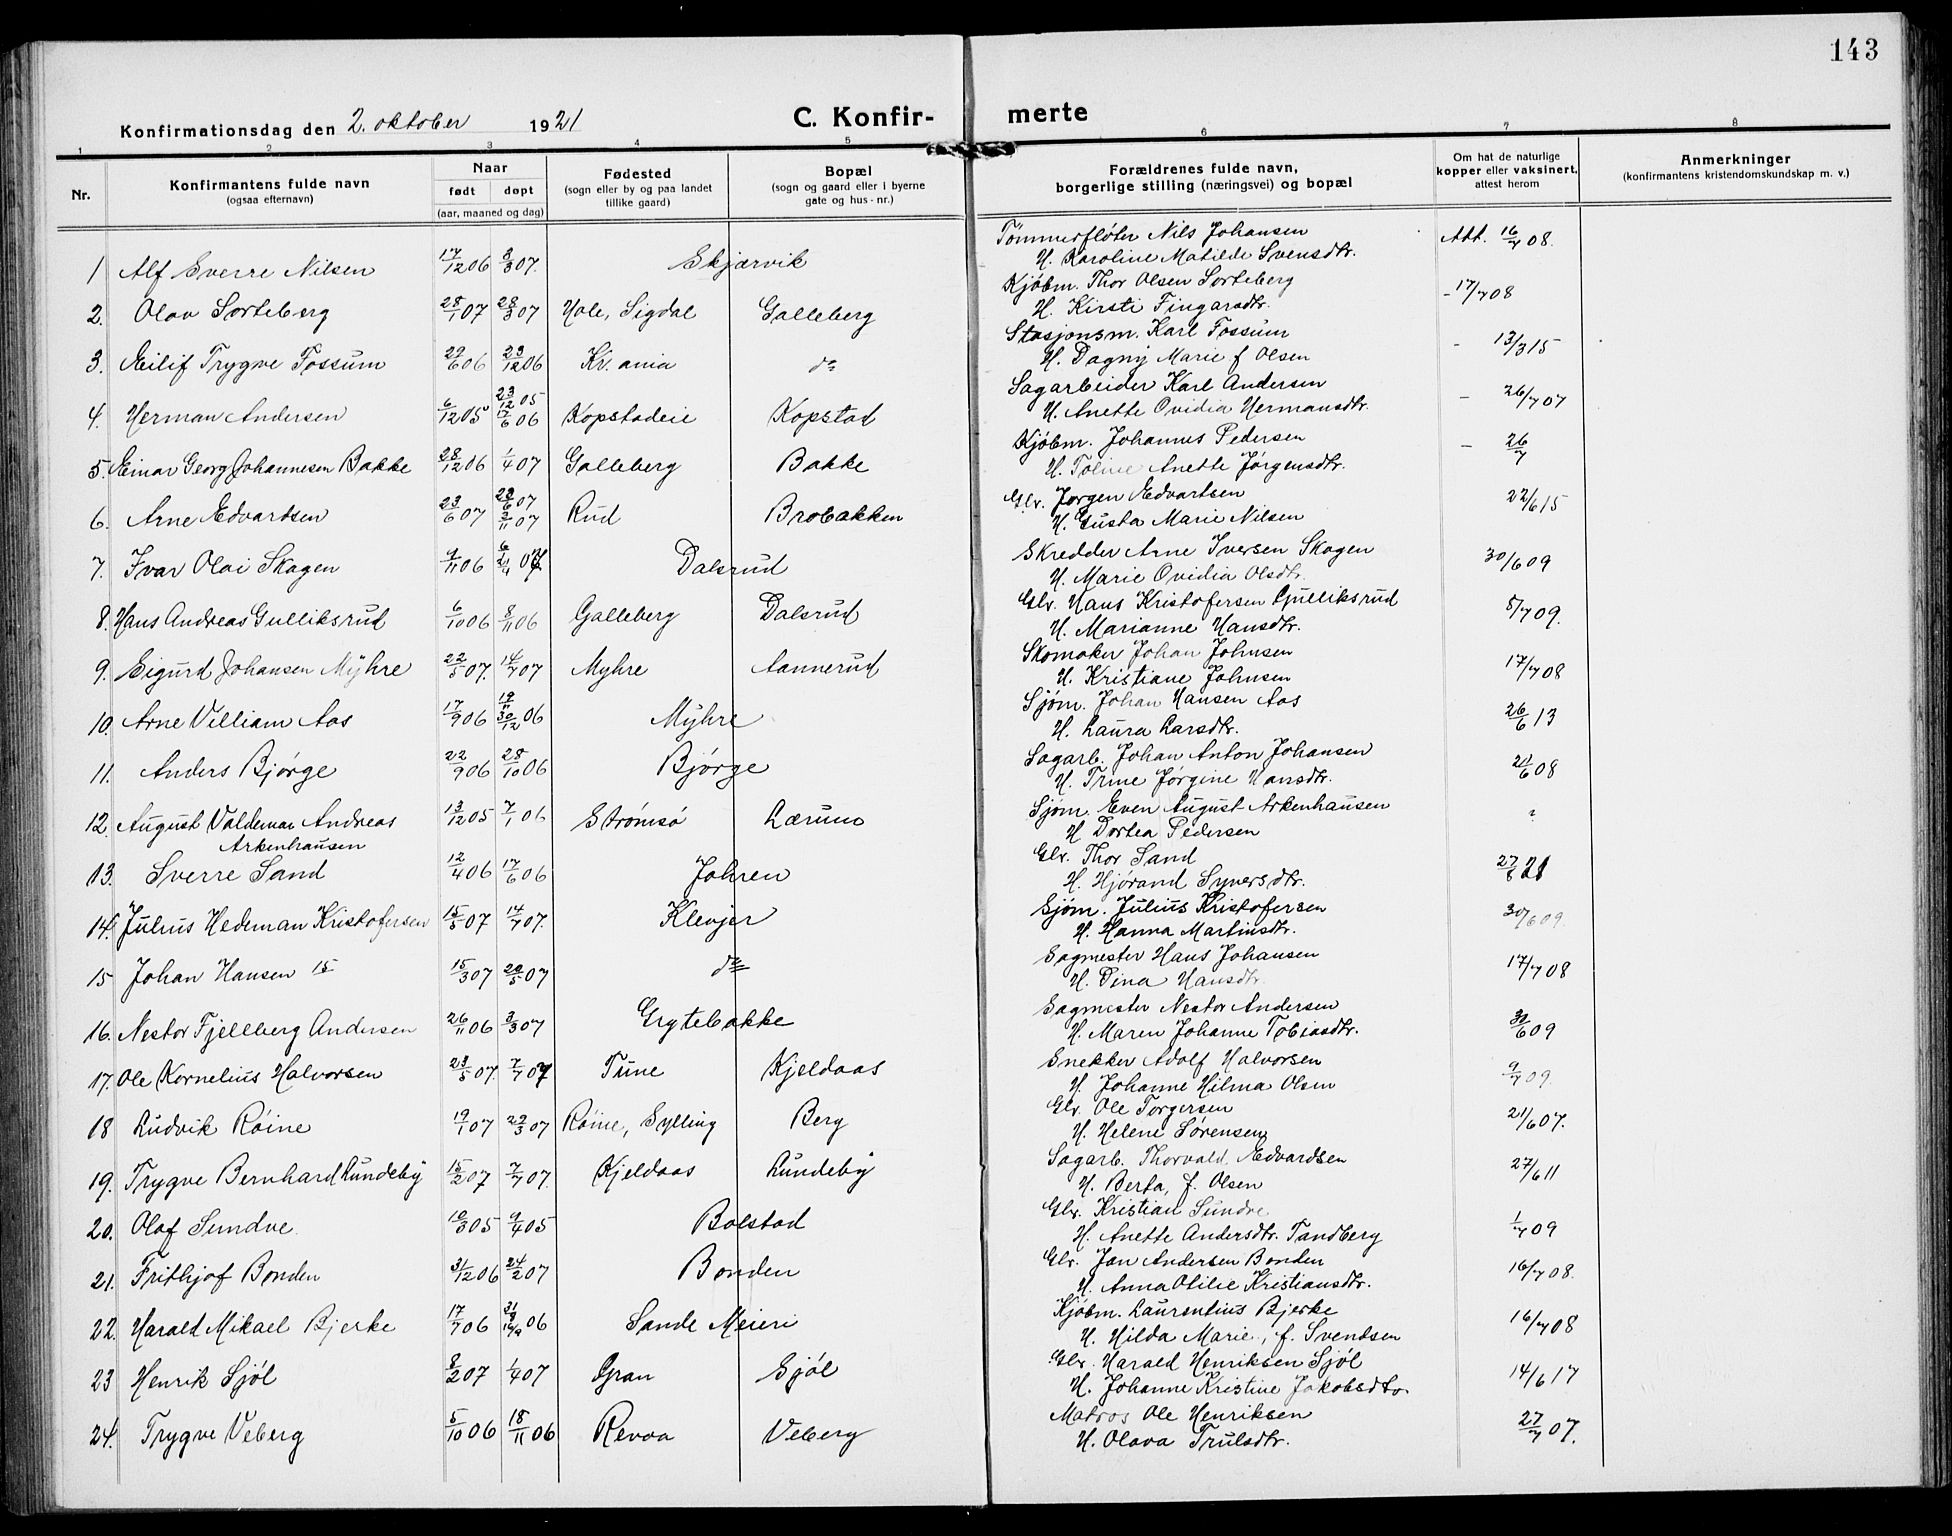 143
Konfirmationsdag den 2. oktober 1921
C. Konfirmerte
1 2 3 4 5 6 7 8
Nr. | Konfirmantens fulde navn (ogsaa efternavn) | Naar født døpt (aar, maaned og dag) | Fødested (sogn eller by og paa landet tillike gaard) | Bopæl (sogn og gaard eller i byerne gate og hus-nr.) | Forældrenes fulde navn, borgerlige stilling (næringsvei) og bopæl | Om hat de naturlige kopper eller vaksinert, attest herom | Anmerkninger (konfirmantens kristendomskundskap m. v.)
1 Alf Sverre Nilsen 17/12 06 3/3 07. Skjærvik Tømmerfløter Nils Johansen Att. 16/7 08.
H. Karoline Matilde Svensdtr.
2. Olav Sorteberg 28/1 07 28/3 07 Hole, Sigdal Galleberg Kjøbm. Thor Olsen Sorteberg - 17/7 08
H. Kirsti Fingarsdtr.
3. Eilif Trygve Fossum 29/6 06 23/12 06 Kr.ania do Stasjonsm. Karl Fossum - 13/3 15
H. Dagny Marie f. Olsen
4. Herman Andersen 6/12 05 23/12 05 17/6 06 Kopstadeie Kopstad Sagarbeider Karl Andersen - 26/7 07
H. Anette Ovidia Hermansdtr.
5. Einar Georg Johannesen Bakke 28/12 06 1/4 07 Galleberg Bakke Kjøbm. Johannes Pedersen - 26/7
H. Toline Anette Jørgensdtr.
6. Arne Edvartsen 23/6 07 23/6 07 3/11 07 Rud Brobakken Glv. Jørgen Edvartsen 22/6 15
H. Gusta Marie Nilsen
7. Ivar Olai Skagen 9/11 06 6/1 21/4 07 Dalsrud Skredder Arne Iversen Skagen 30/6 09
H. Marie Ovidia Olsdtr.
8. Hans Andreas Gulliksrud 6/10 06 8/11 06 Galleberg Dalsrud Glv. Hans Kristofersen Gulliksrud 5/7 09.
H. Marianne Hansdtr.
9. Sigurd Johansen Myhre 22/5 07. 14/7 07 Myhre Aannerud Skomaker Johan Johnsen 17/7 08
H. Kristiane Johnsen
10. Arne Villiam Aas 17/9 06 19/11 30/12 06 Myhre Sjøm. Johan Hansen Aas 26/6 13
H. Laura Larsdtr.
11. Anders Bjørge 22/9 06 28/10 06 Bjørge Sagarb. Johan Anton Johansen 21/6 08
H. Trine Jørgine Hansdtr.
12. August Valdemar Andreas Arkenhausen 13/12 05 7/1 06 Strømsø Lærum Sjøm. Even August Arkenhausen ?
H. Dortea Pedersen
13. Sverre Sand 12/4 06 17/6 06 Johren Glv. Thor Sand 27/8 21
H. Hjørand Syversdtr.
14. Julius Hedeman Kristofersen 15/5 07 14/7 07. Klevjer Sjøm. Julius Kristofersen 30/6 09.
H. Hanna Martinsdtr.
15 Johan Hansen 15 15/3 07 20/5 07 do Sagmester Hans Johansen 17/7 08
H. Dina Hansdtr.
16. Nestor Fjellberg Andersen 26/11 06 3/3 07 Grytebakke Sagmester Nestor Andersen 30/6 09
H. Maren Johanne Tobiasdtr.
17. Ole Kornelius Halvorsen 23/5 07. 7/7 07 Tune Kjeldaas Snekker Adolf Halvorsen 9/7 09.
H. Johanne Hilma Olsen
18 Ludvik Røine 19/1 07 23/3 07 Røine, Sylling Berg Glv. Ole Torgersen 21/6 07.
H. Helene Sørensen
19. Trygve Bernhard Lundeby 15/2 07 7/7 07. Kjeldaas Lundeby Sagarb. Thorvald Edvardsen 27/6 11
H. Berta, f. Olsen
20. Olaf Sundve 10/3 05 9/4 05 Bolstad Glv. Kristian Sundve 1/7 09
H. Anette Andersdtr. Tandberg
21. Frithjof Bonden 31/12 06 24/2 07 Bonden Glv. Jan Andersen Bonden 16/7 08.
H. Anna Otilie Kristiansdtr.
22. Harald Mikael Bjerke 17/7 06 21/8 16/9 06 Sande Meieri Kjøbm. Laurentius Bjerke 16/7 08
H. Hilda Marie, f. Svendsen
23 Henrik Sjøl 8/2 07 1/4 07 Gran Sjøl Glv. Harald Henriksen Sjøl 14/6 17
H. Johanne Kristine Jakobsdtr.
24. Trygve Veberg 5/10 06 18/11 06 Revaa Veberg Matros Ole Henriksen 27/7 07.
H. Olava Trulsdtr.